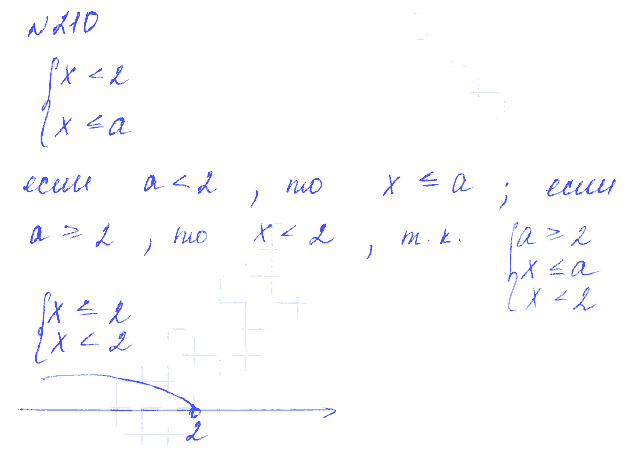 N210
x < 2
x ≤ a
если a < 2, то x ≤ a; если
a ≥ 2, то x < 2, т.к.
a ≥ 2
x ≤ a
x < 2
x ≤ 2
x < 2
2